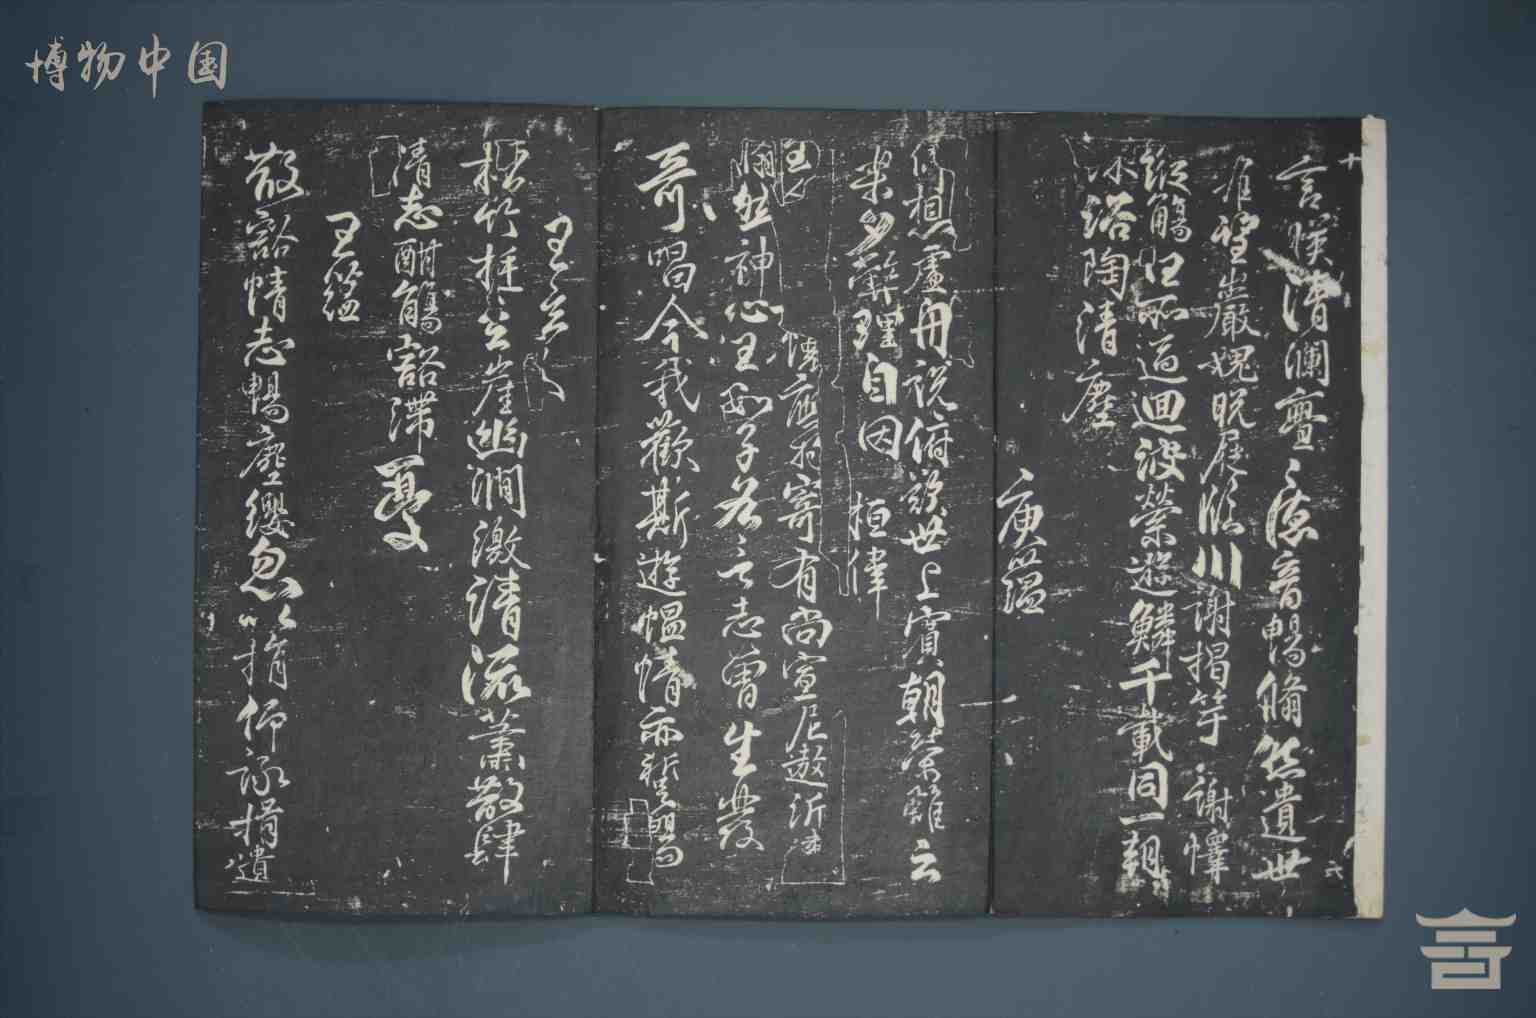 博物中国
十
言暎清瀾亹亹德音暢脩然遺世
唯望巖愧脫屣臨川謝揭竿 謝懌
縱觴任所適迴波縈遊鱗千載同一朝
沐浴陶清塵
庾蘊
仰想虛舟說俯歎世上賓朝榮雖云
樂夕弊理自因 桓偉
主人懷應物寄有尚宣尼遨沂津
翛然神心王數子各言志曾生發
奇唱今我歡斯遊慍情亦蹔暢
王玄之
松竹挺岩崖幽澗激清流蕭散肆
清志酣觴豁滯憂
王蘊
散豁情志暢塵纓忽以捐仰詠挹遺